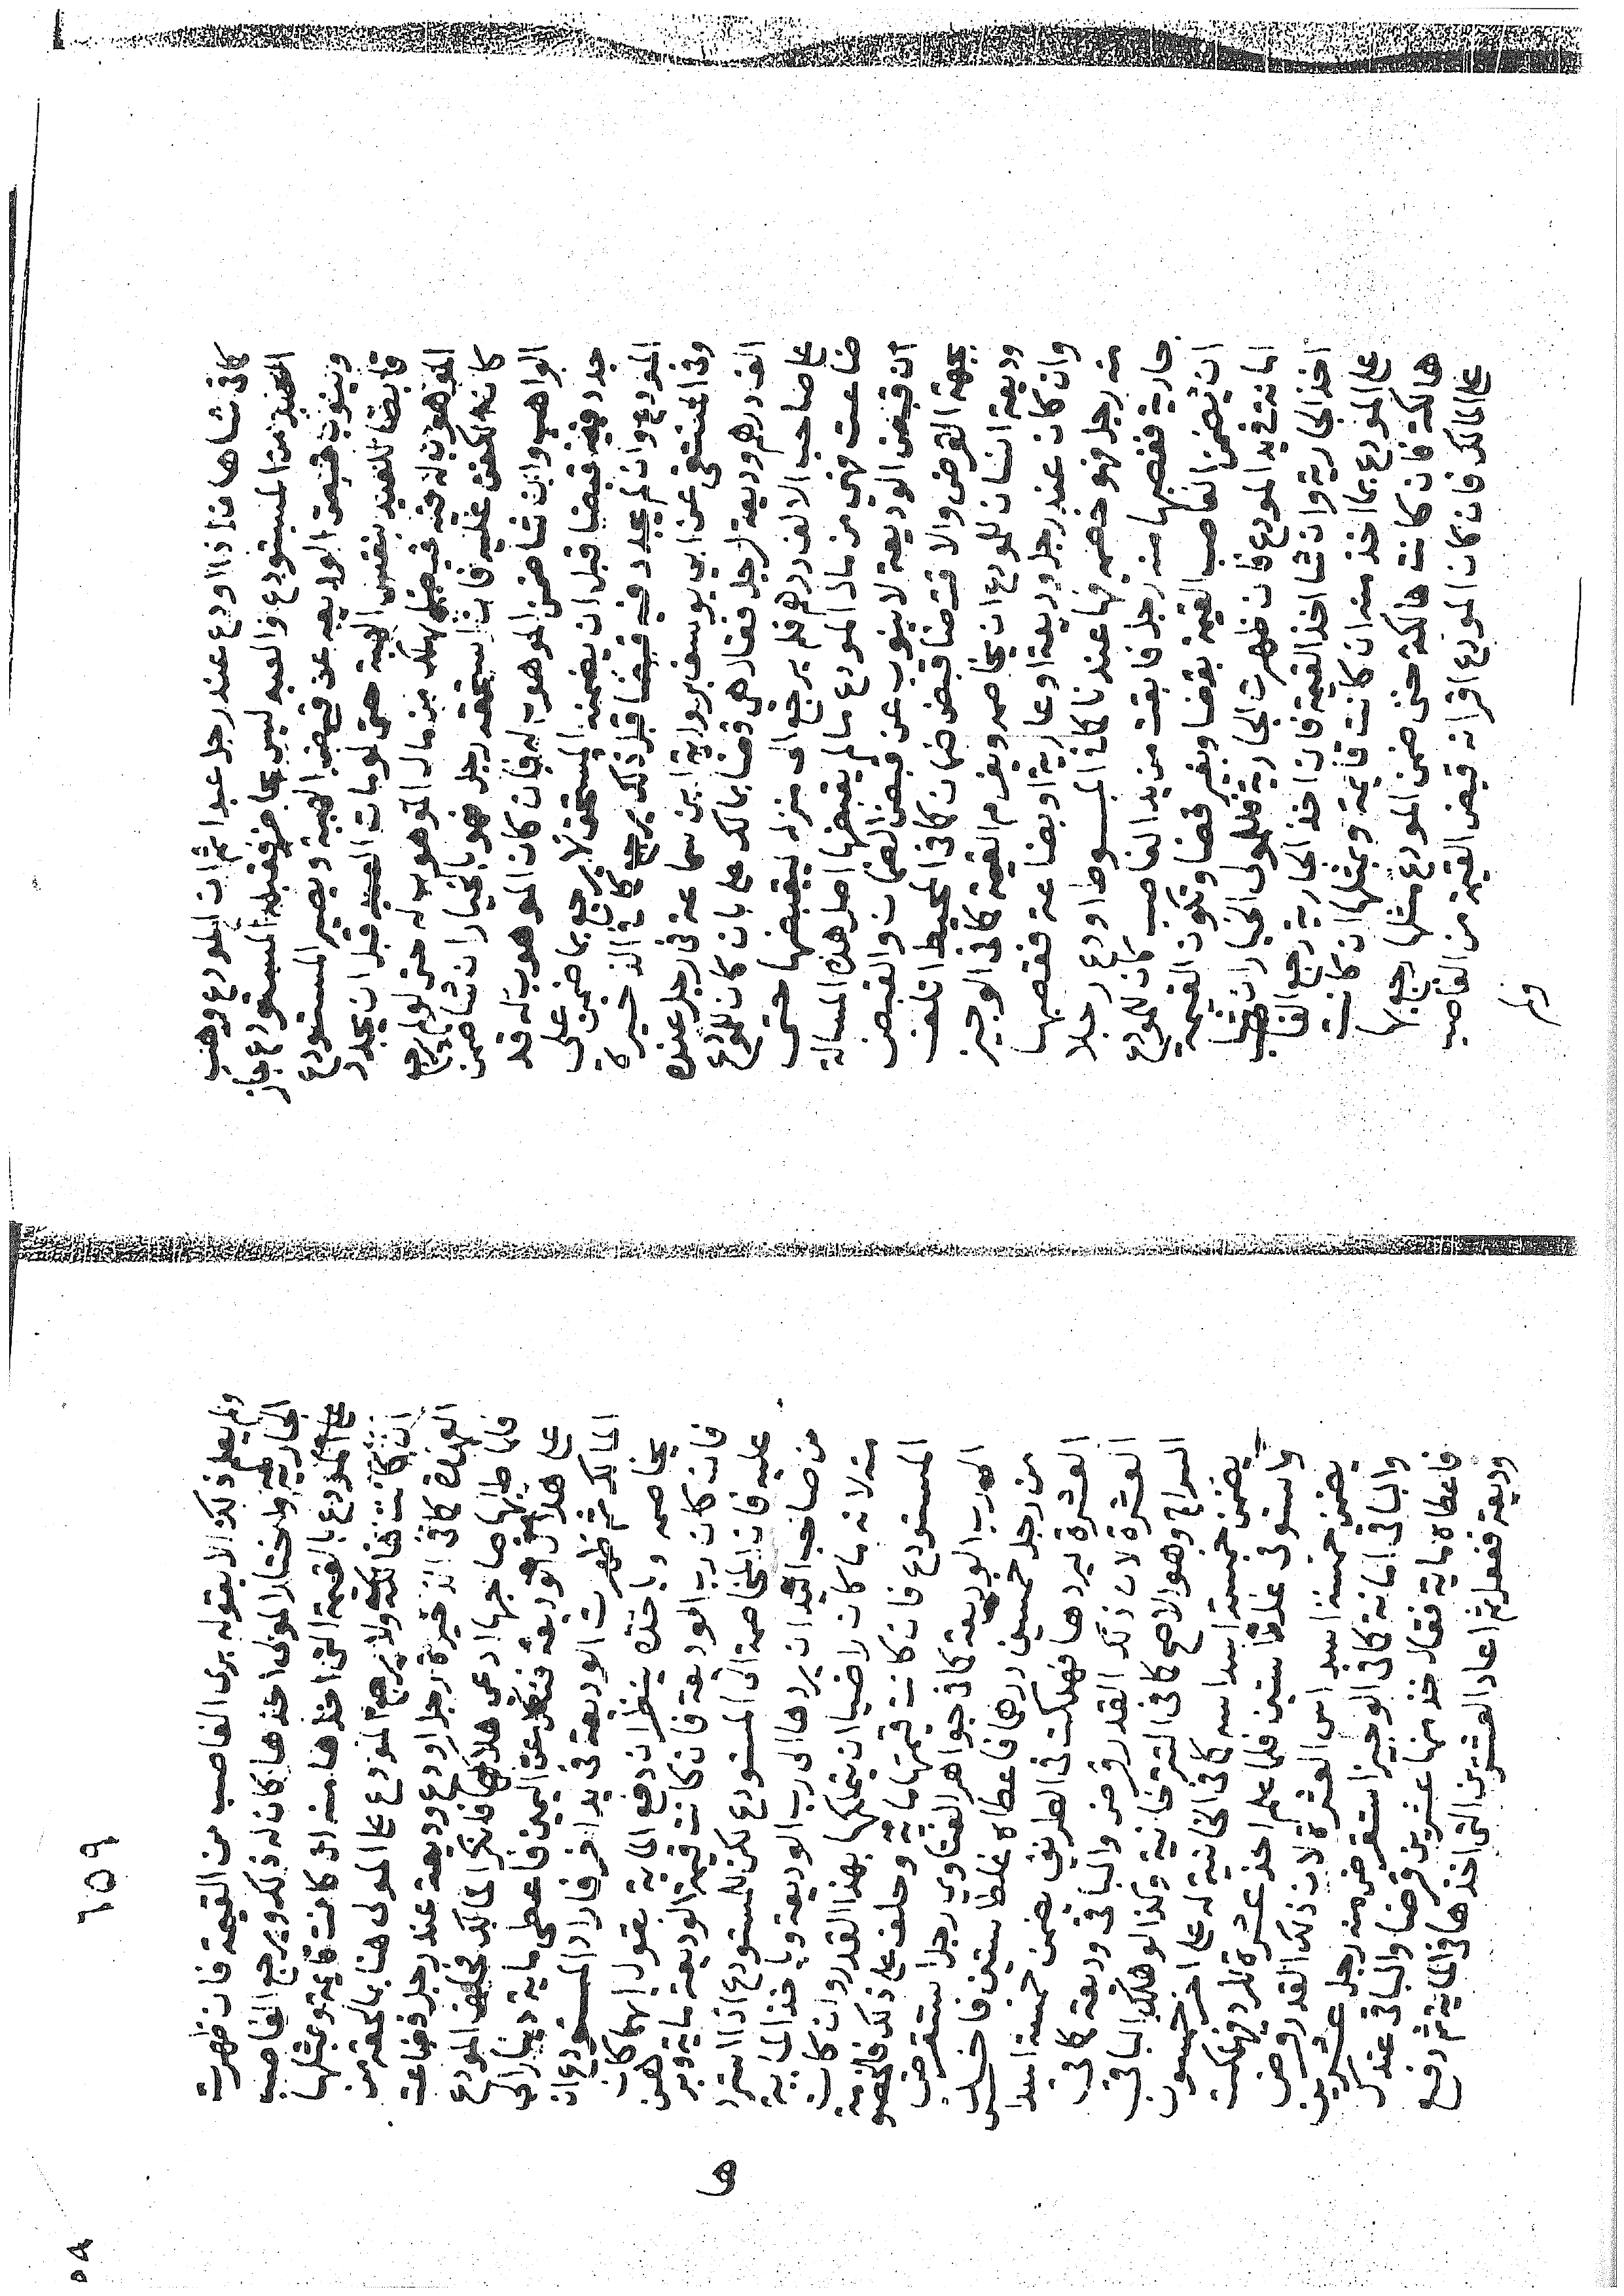 كافي شاهان اذا اودع عند رجل عبدا ثم ان المودع وهب
العبد من المستودع والعبد ليس بحاضر فقبله المستودع جاز
وينوب قبض الوديعه عن قبض الهبة ويصير المستودع
قابضا للعبد بنفس الهبة حتى لو مات العبد قبل ان يجدد
الموهوب له فيه قبضا يهلك من مال الموهوب له حتى لو لم يرجع
كان الكفن عليه فان استحقه رجل فهو بالخيار ان شا ضمن
الواهب وان شا ضمن الموهوب له فان كان الموهوب له قد
جدد فيه قبضا قبل ان يضمنه المستحق لا يرجع بما ضمن على
المودع وان لم يجدد فيه قبضا قبل ذلك يرجع كافي الذخيرة
وفي المنتقى عن ابي يوسف برواية ابن سماعة في رجل عنده
الف درهم وديعة لرجل فقال هي قضا بمالك علي بان كان للمودع
على صاحب الالف درهم فلم يرجع الى منزله ليقبضها حتى
ضاعت فهي من مال المودع مالم يقبضها اصل هذه المساله
ان قبض الوديعة لا ينوب عن قبض الضمان والقبض
بجهة القرض والاقتضا قبض ضمان كافي المحيط اتلف
وديعة انسان للمودع ان يخاصمه ويغرم القيمة كافي الوجيز
وان كان عند رجل وديعة او عارية او بضاعة فغصبها
منه رجل فهو خصمه فيها عندنا كافي المبسوط اودع رجلا
جارية فغصبها منه رجل فابقت من يد الغاصب كان للمودع
ان يضمن الغاصب القيمة بقضا وبغير قضا وتكون القيمة
امانة في يد المودع فان ظهرت الجارية فللمولى الخيار ان شا
اخذ الجارية وان شا اخذ القيمة فان اخذ الجارية رجع الغاصب
على المودع بما اخذ منه ان كانت قايمة وبمثلها ان كانت
هالكة فان كانت هالكة حتى ضمن المودع مثلها رجع بها
على المالك فان كان المودع اقر انه قبض القيمة من الغاصب
ولم
١٥٩
ولم يعلم ذلك الا بقوله برى الغاصب من القيمة فان ظهرت
الجارية واختار المولى اخذها كان له ذلك ويرجع الغاصب
على المودع بالقيمة التي اخذها منه ان كانت قايمة وبمثلها
ان كانت هالكة ولا يرجع المودع على المولى هنا بما لحقه من
العهدة كافي الذخيرة رجل اودع وديعة عند رجل فضاعت
فلما طلبها صاحبها ادعى هلاكها فانكر المالك فحلف المودع
على هلاك الوديعة فنكل عن اليمين فاعطى ماية دينار الى
المالك ثم ظهرت الوديعة في يد اخر فاراد المستودع ان
يخاصمه وياخذه ينظر ان دفع الماية بقول ايهما كان
فان كان رب الوديعة فان كانت قيمة الوديعة ماية وبرهن
عليه فان المخاصمة الى المستودع لكن للمستودع اذا استرد
من صاحب اليد ان يردها الى رب الوديعة وياخذ الماية
منه لانه ما كان راضيا ان يتملكها بهذا القدر وان كان
المستودع فان كانت قيمتها ماية وحلف على ذلك فالخصومة
الى رب الوديعة كافي جواهر الفتاوي رجل استقرض
من رجل خمسين درهما فاعطاه غلطا ستين فاخذ
العشرة ليردها فهلكت في الطريق يضمن خمسة اسداس
العشرة لان ذلك القدر قرض والباقي وديعة كافي
السراج وهو الاصح كافي التترخانية وكذا لو هلك الباقي
يضمن خمسة اسداسه كافي الخانية له على اخر خمسون
واستوفى غلطا ستين فلما علم اخذ عشرة للرد فهلكت
يضمن خمسة اسداس العشرة لان ذلك القدر قرض
والباقي امانة كافي الوجيز استقرض منه رجل عشرين
فاعطاه ماية فقال خذ منها عشرين قرضا والباقي عندك
وديعة ففعل ثم اعاد العشرين التي اخذها في الماية ثم دفع